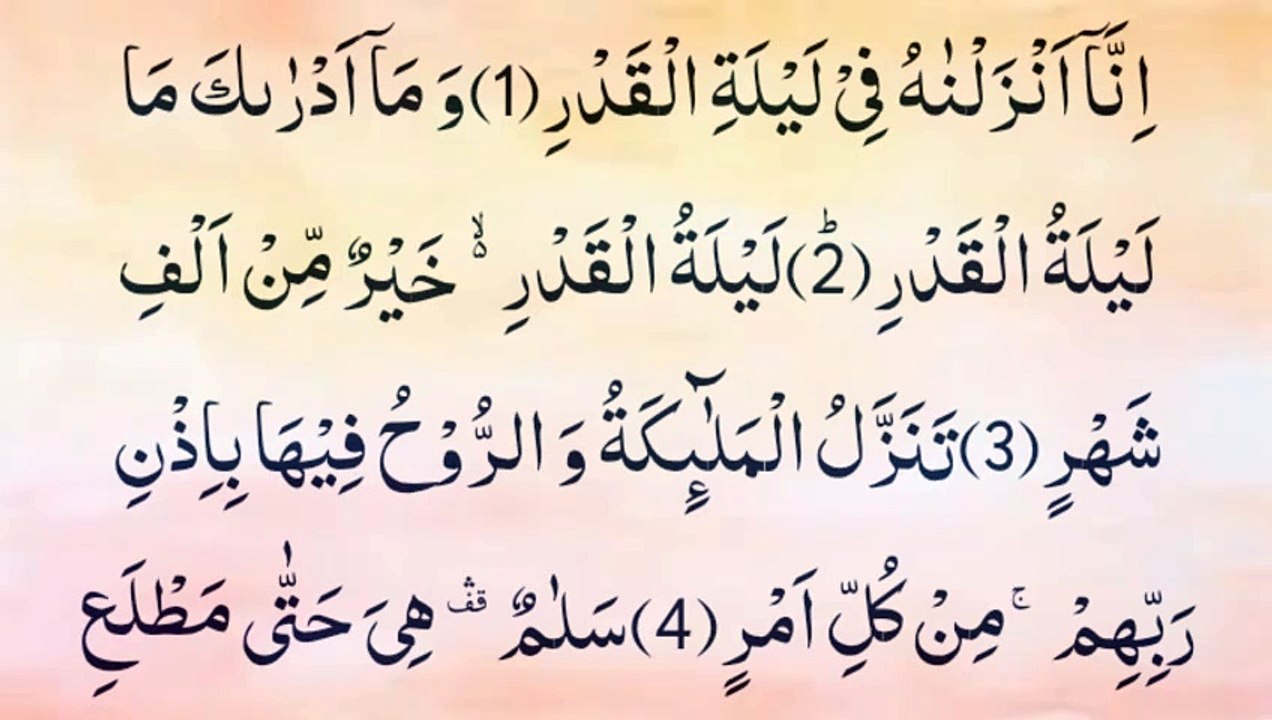 اِنَّاۤ اَنْزَلْنٰهُ فِیْ لَیْلَةِ الْقَدْرِ(1)وَ مَاۤ اَدْرٰىكَ مَا
لَیْلَةُ الْقَدْرِﭤ(2)لَیْلَةُ الْقَدْرِ ﳔ خَیْرٌ مِّنْ اَلْفِ
شَهْرٍ(3)تَنَزَّلُ الْمَلٰٓىٕكَةُ وَ الرُّوْحُ فِیْهَا بِاِذْنِ
رَبِّهِمْ ۚ مِنْ كُلِّ اَمْرٍ(4)سَلٰمٌ ﱡ هِیَ حَتّٰى مَطْلَعِ